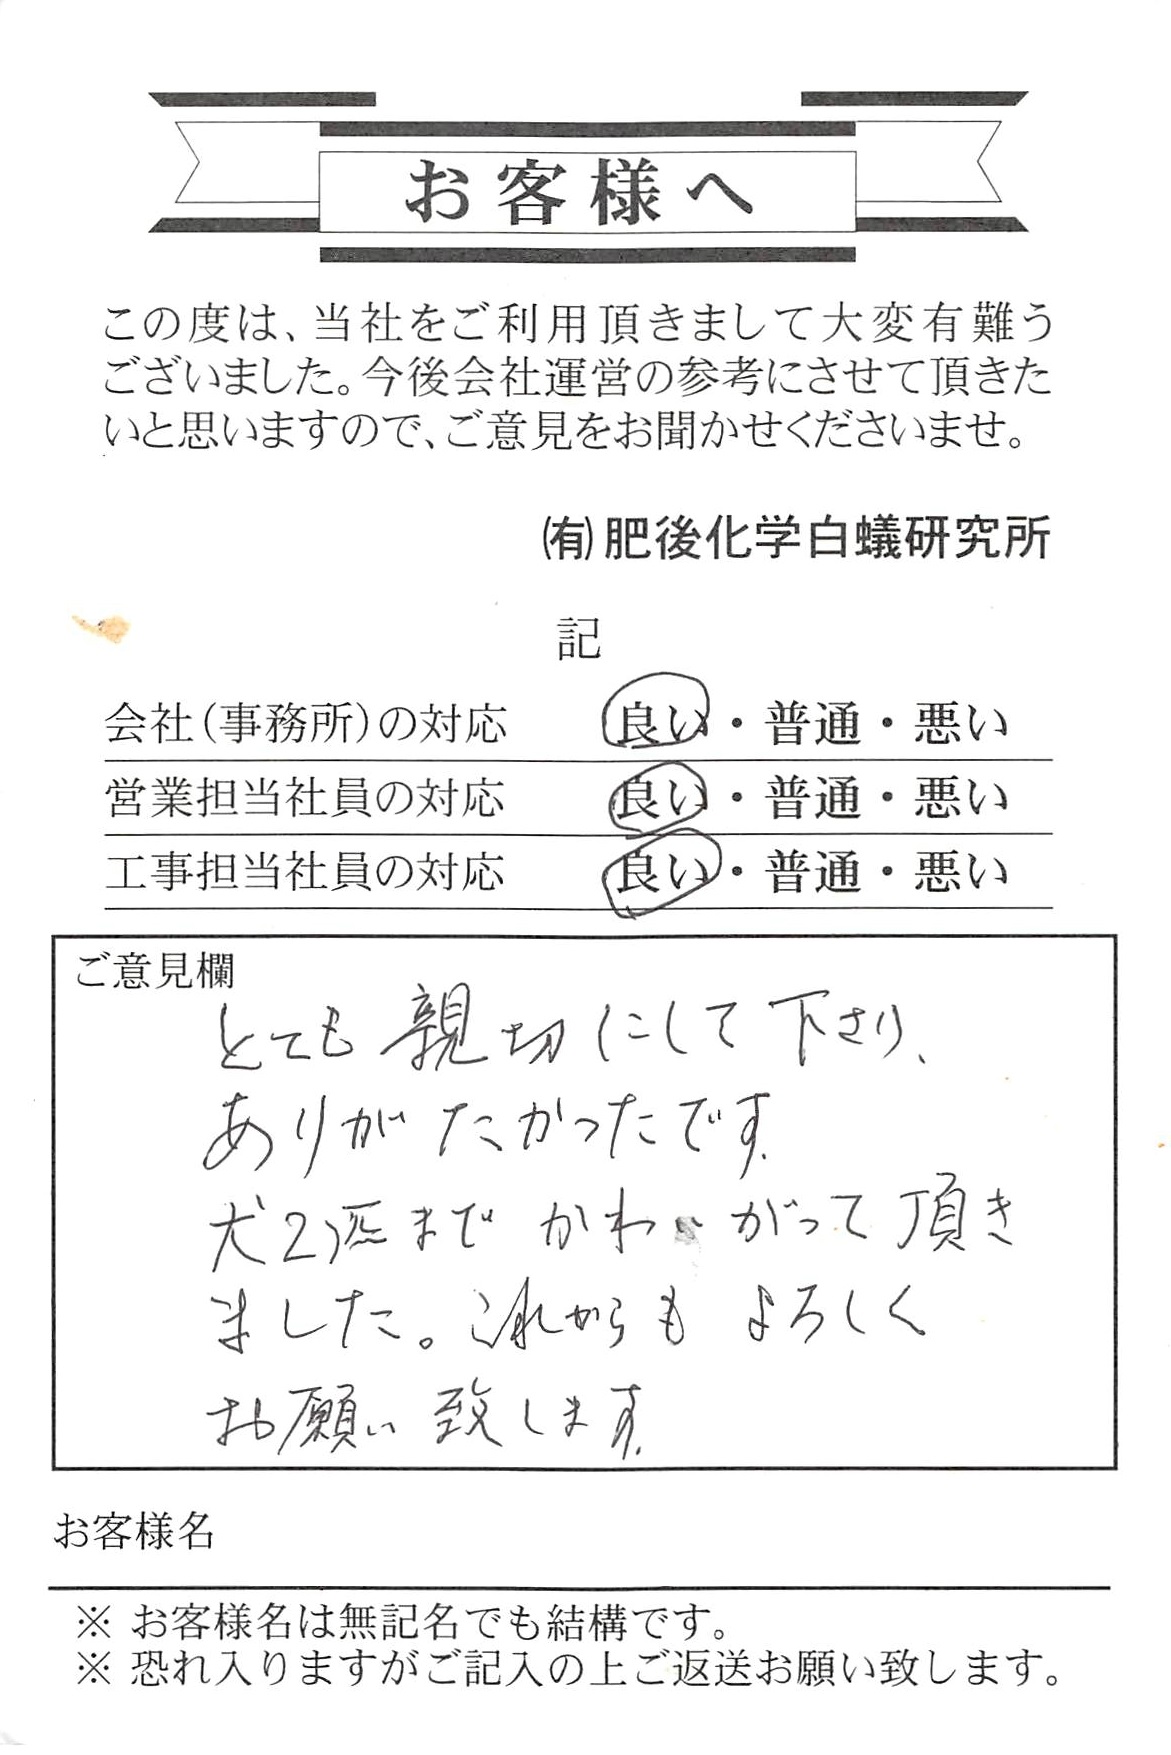 お客様へ
この度は、当社をご利用頂きまして大変有難う
ございました。今後会社運営の参考にさせて頂きた
いと思いますので、ご意見をお聞かせくださいませ。
㈲肥後化学白蟻研究所
記
会社(事務所)の対応 良い・普通・悪い
営業担当社員の対応 良い・普通・悪い
工事担当社員の対応 良い・普通・悪い
ご意見欄
とても親切にして下さり、
ありがたかったです。
犬2匹までかわいがって頂き
ました。これからもよろしく
お願い致します。
お客様名
※ お客様名は無記名でも結構です。
※ 恐れ入りますがご記入の上ご返送お願い致します。